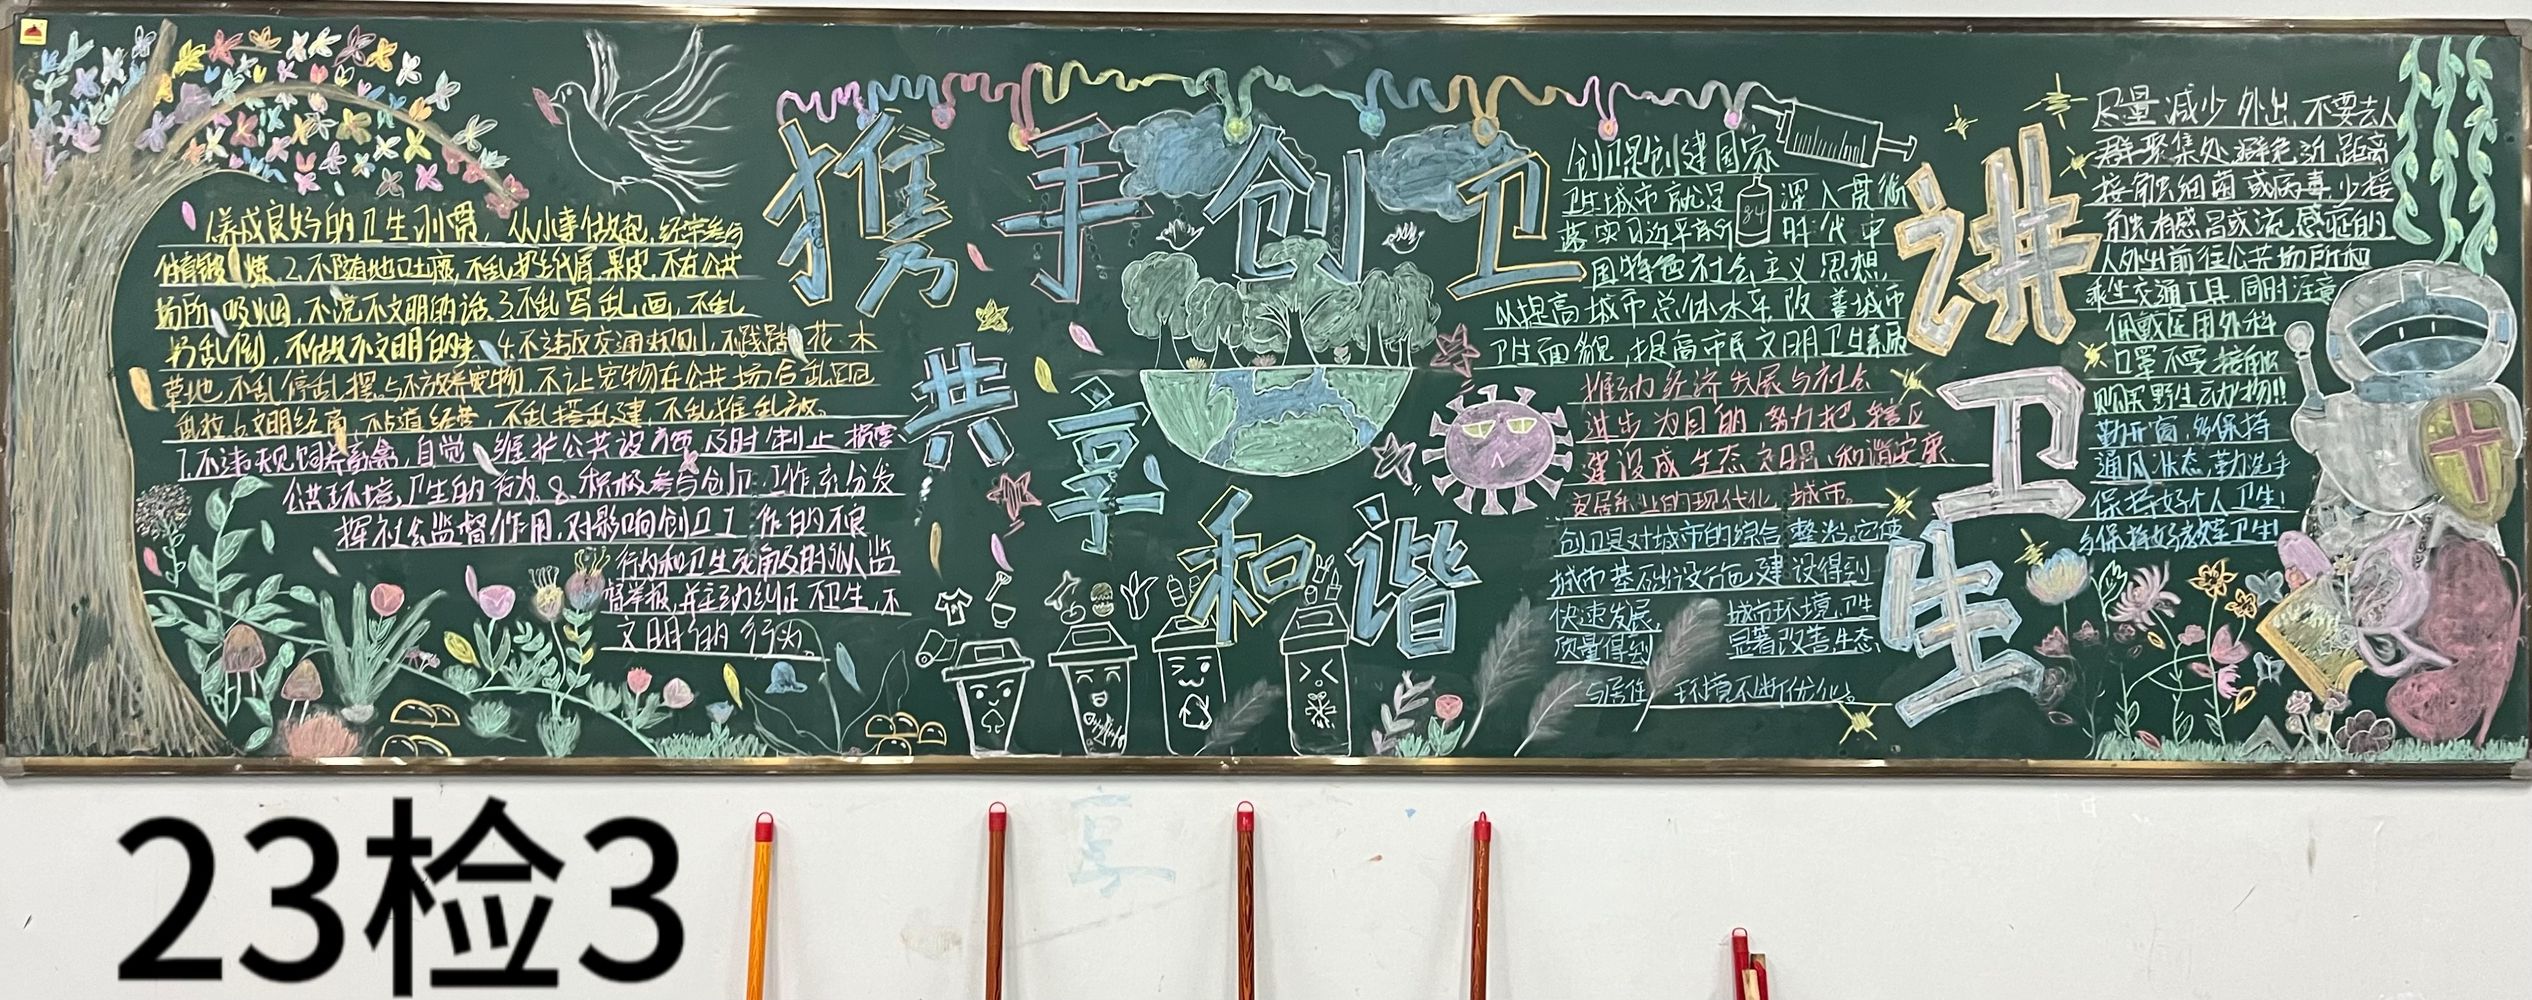 携手创卫
共享
和谐
讲卫生
1.养成良好的卫生习惯,从小事做起,经常参与
体育锻炼.2.不随地吐痰,不乱扔纸屑.果皮.不在公共
场所吸烟,不说不文明的话.3.不乱写乱画,不乱
扔乱倒,不做不文明的事.4.不违反交通规则,不践踏花木
草地,不乱停乱摆.5.不放养宠物,不让宠物在公共场合乱
6.文明经商,不占道经营,不乱搭乱建,不乱堆乱放。
7.不违规饲养畜禽,自觉维护公共设施,及时制止损害
公共环境卫生的行为.8.积极参与创卫工作,充分发
挥社会监督作用,对影响创卫工作的不良
行为和卫生死角及时 监
督举报,并主动纠正不卫生,不
文明的行为。
创卫是创建国家
卫生城市就是深入贯彻
84
落实习近平新时代中
国特色社会主义思想,
以提高城市总体水平,改善城市
卫生面貌,提高市民文明卫生素质
推动经济发展与社会
进步为目的,努力把辖区
建设成生态文明、和谐安康、
宜居乐业的现代化城市。
创卫是对城市的综合整治。它使
城市基础设施建设得到
快速发展,城市环境卫生
质量得到显著改善,生态
与居住环境不断优化。
尽量减少外出,不要去人
群聚集处,避免近距离
接触细菌或病毒,少接
触有感冒或流感症的
人外出前往公共场所和
乘坐交通工具,同时注意
佩戴医用外科
口罩不要接触
购买野生动物!!
勤开窗,多保持
通风状态,勤洗手
保持好个人卫生!
保持好教室卫生!
23检3